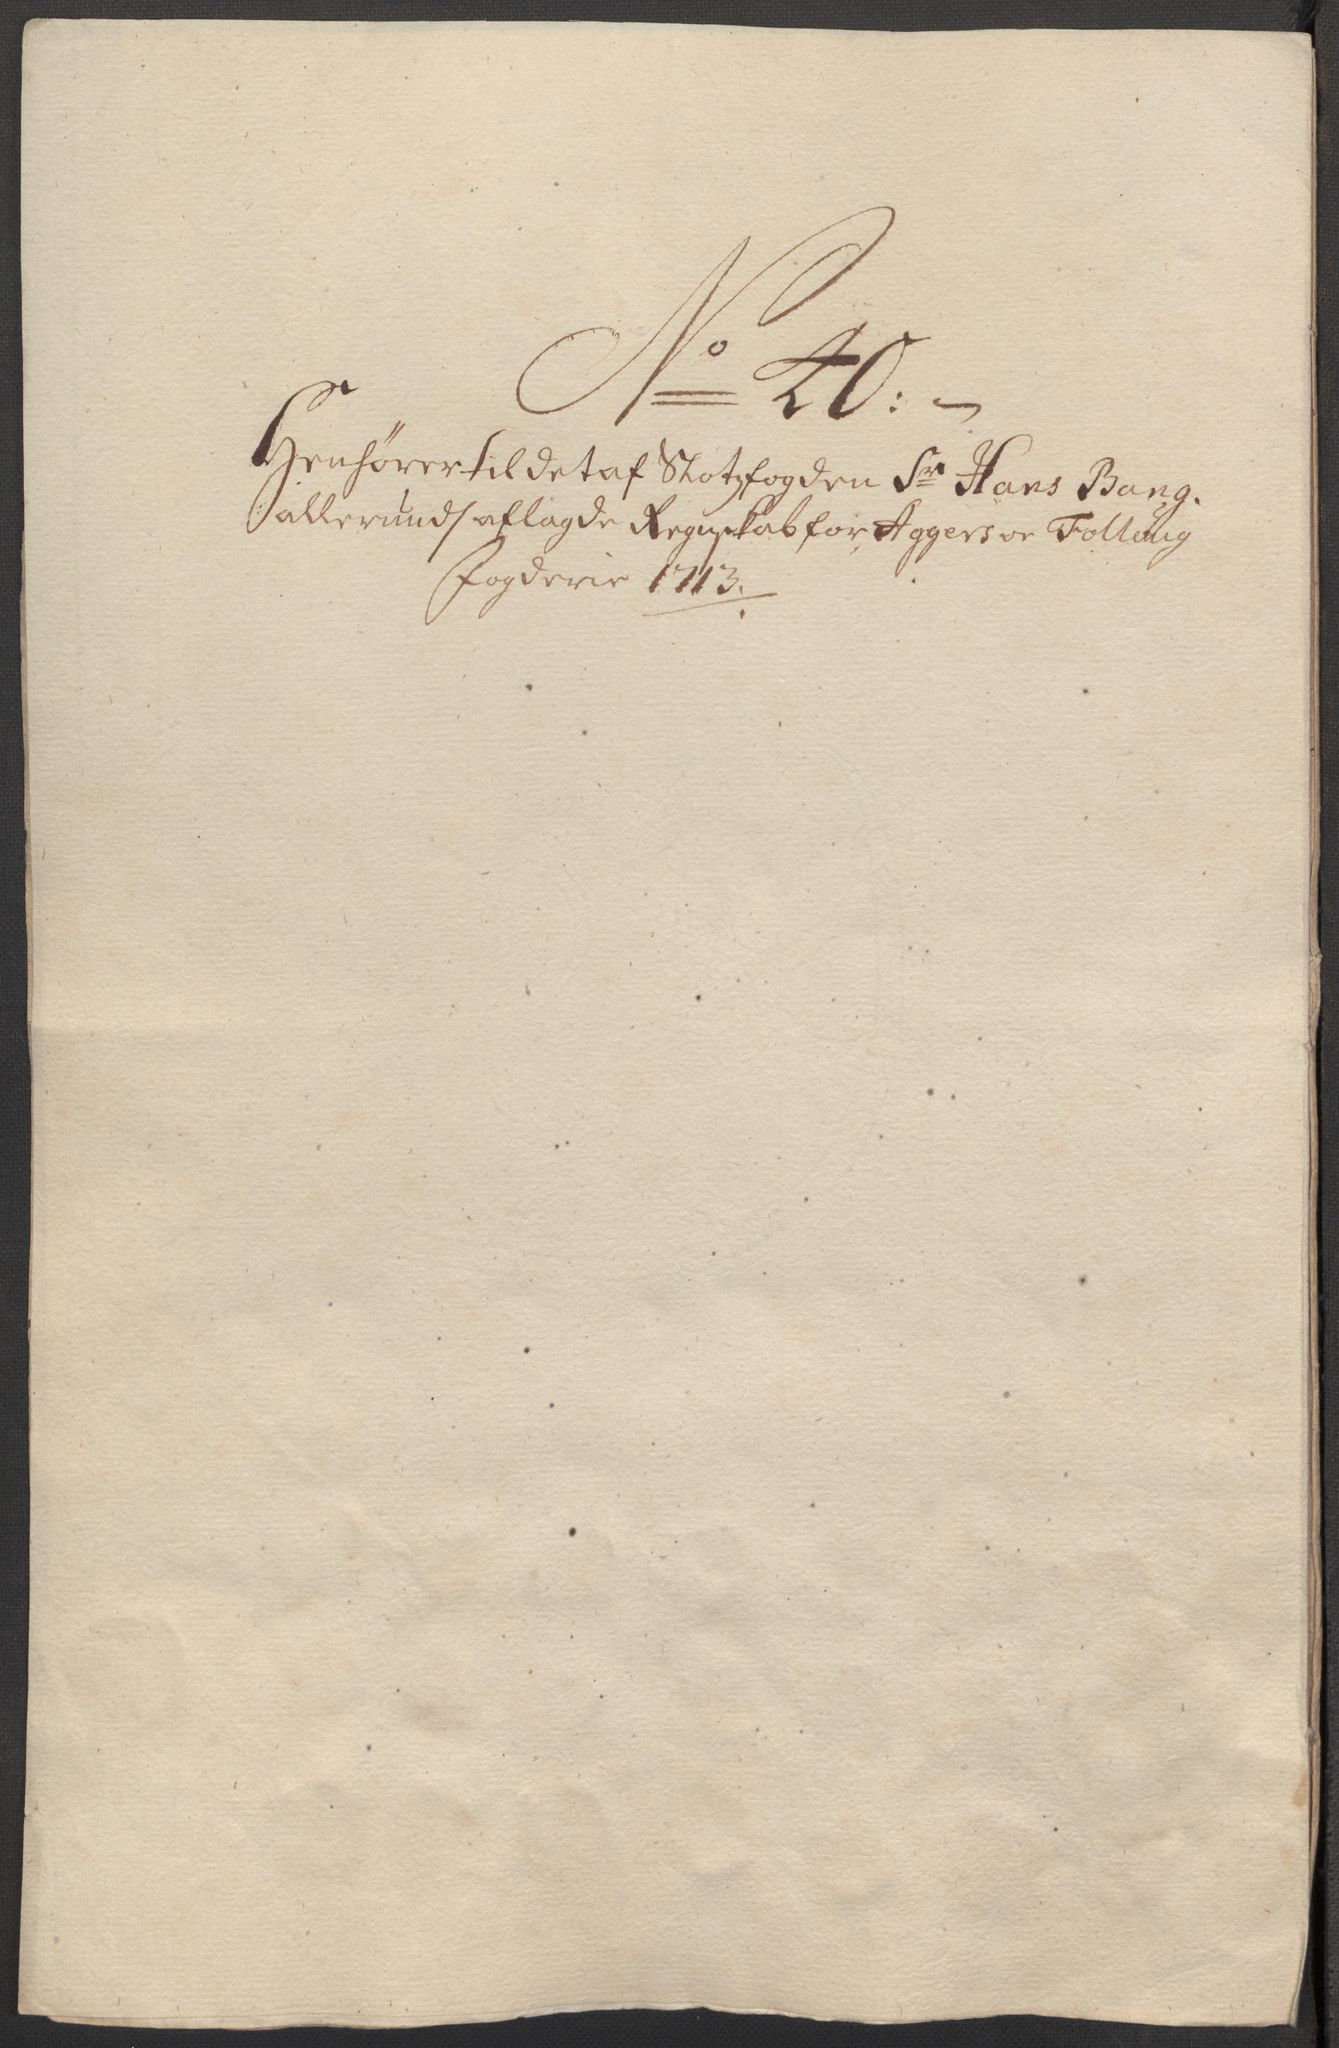 No 40: ~
Henhører til det af Slotzfogden Sr Hans Bang.
allerunds aflagde Regnskab for Aggers oc Folloug
fogderie 1713.